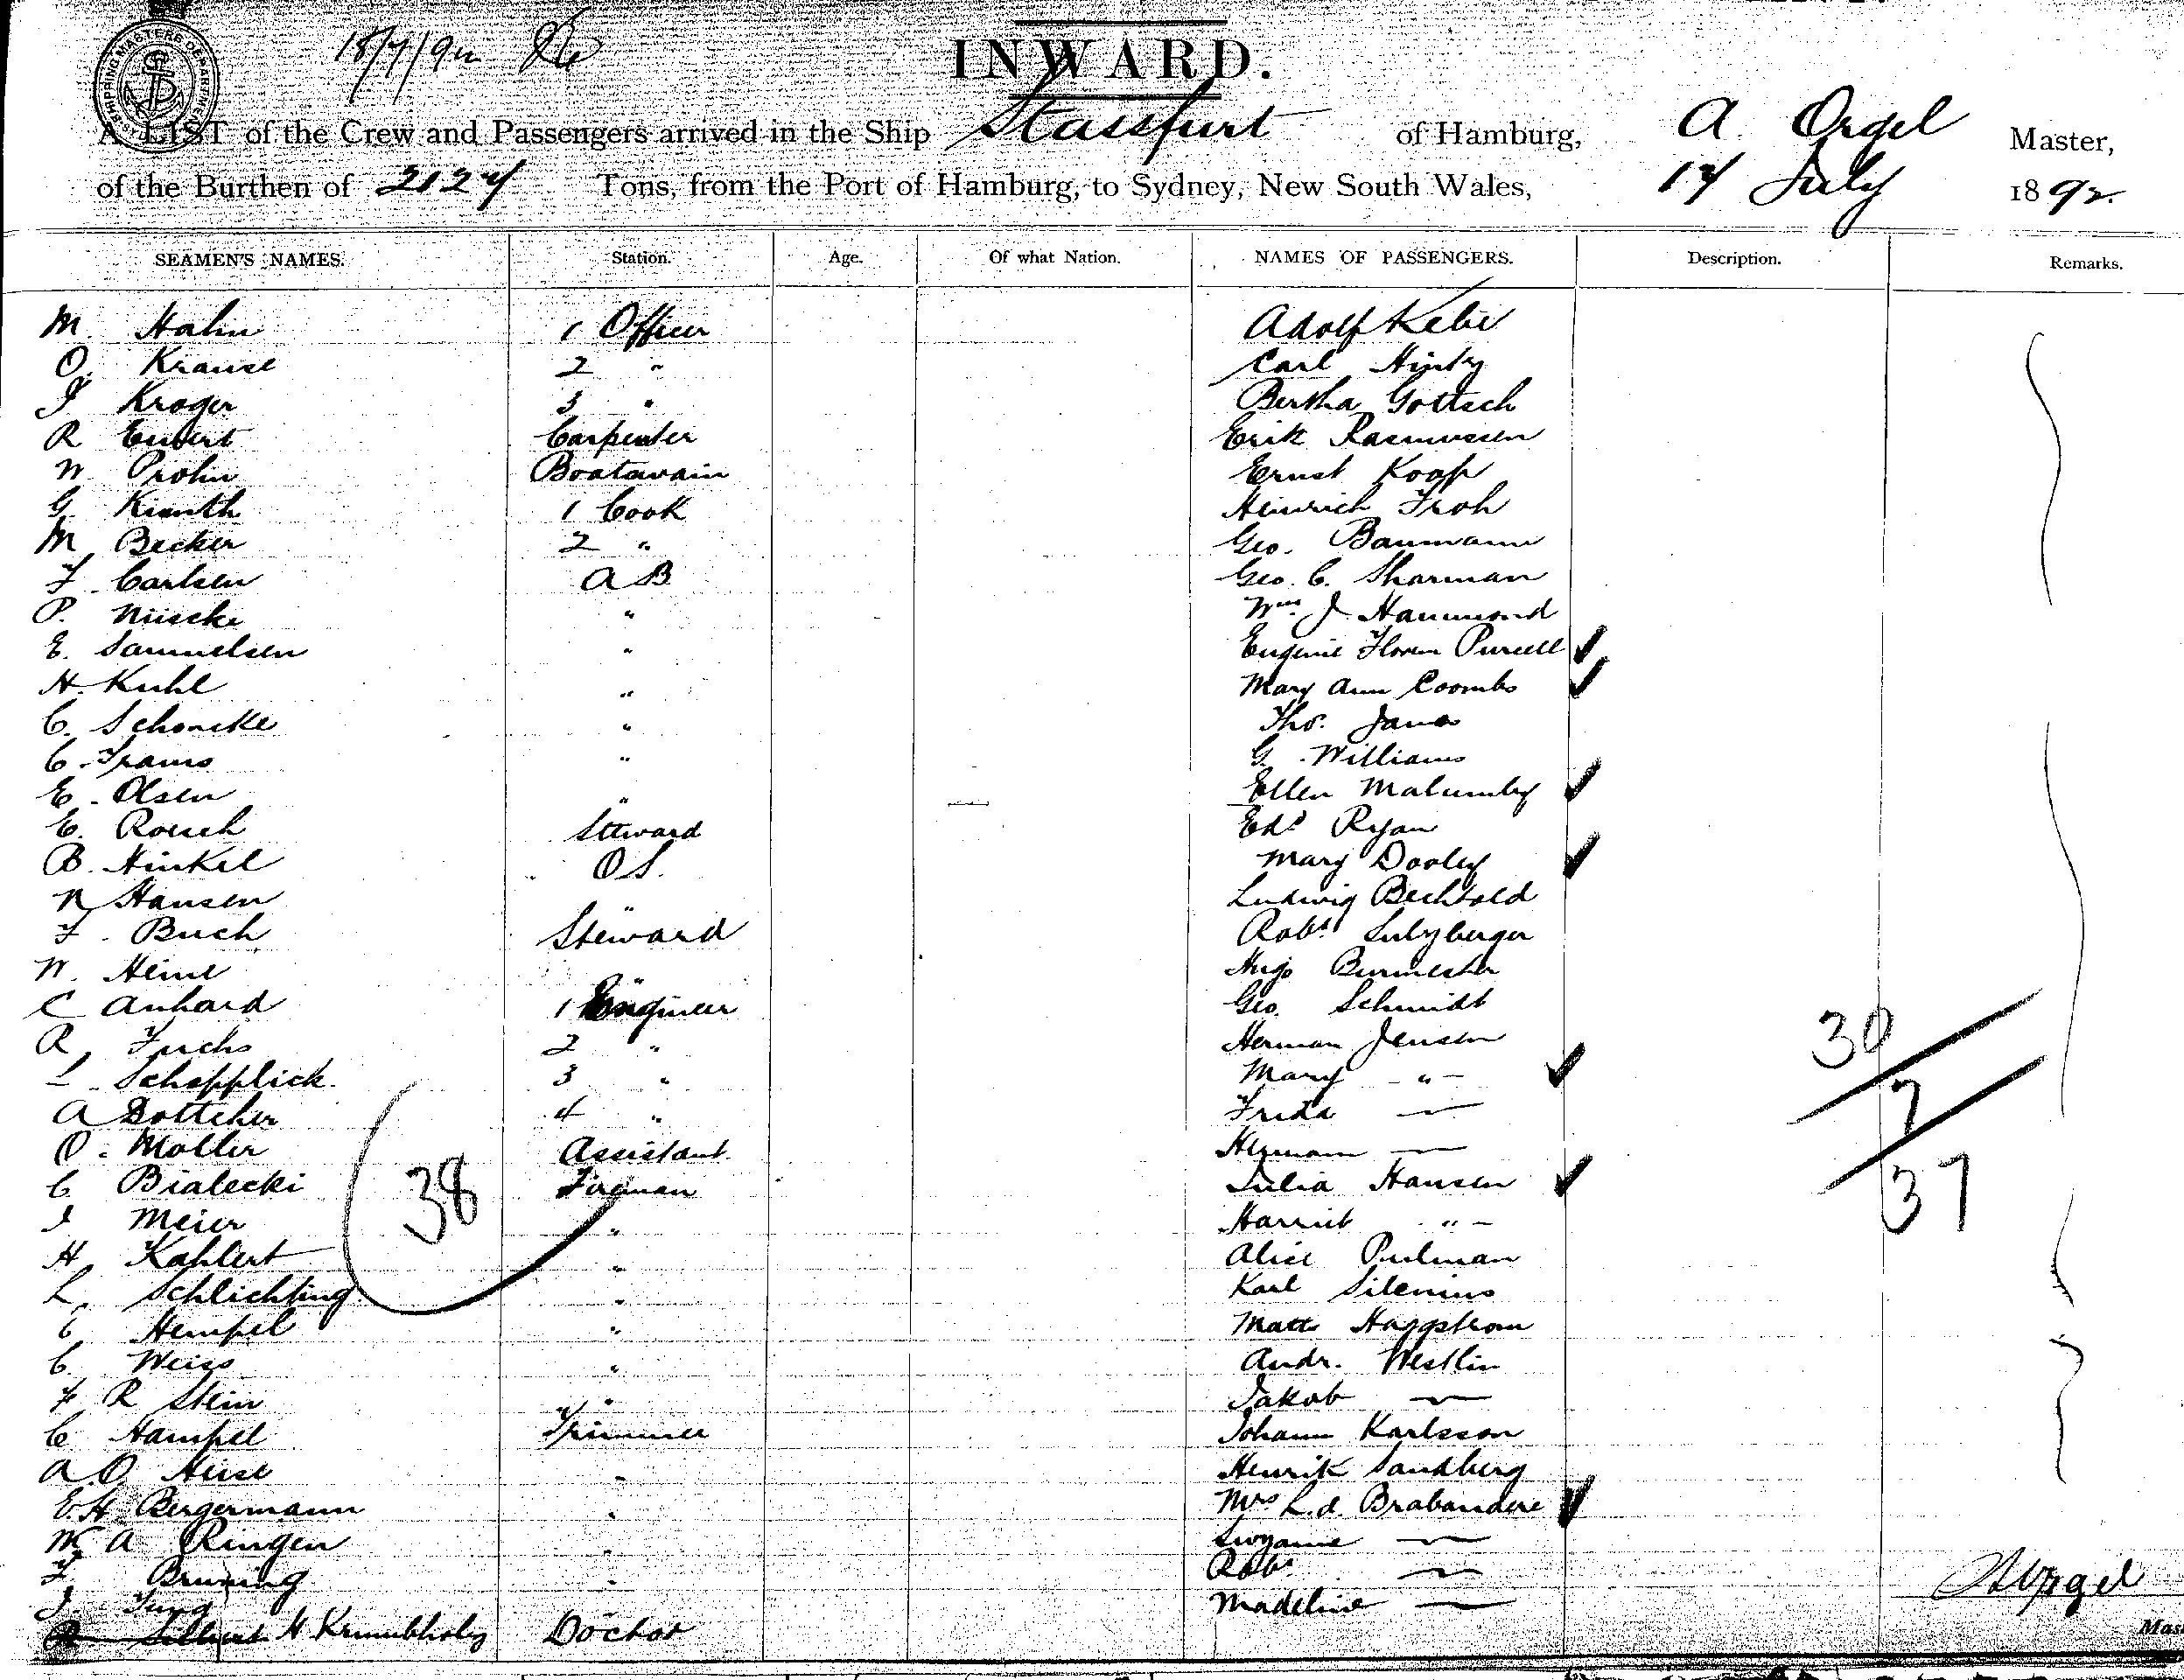 SHIPPING MASTERS OF
18/7/92
INWARD.
A LIST of the Crew and Passengers arrived in the Ship Stassfurt of Hamburg, A Orgel Master,
of the Burthen of 2124 Tons, from the Port of Hamburg, to Sydney, New South Wales, 17 July 1892.
SEAMEN'S NAMES. Station. Age. Of what Nation. NAMES OF PASSENGERS. Description. Remarks.
M Hahn 1 Officer Adolf
O. Krause 2 " Carl
J Kroger 3 " Bertha Gottsch
R Carpenter Erik Rasmussen
W Prohn Boatswain Ernst Koop
G 1 Cook Heinrich Froh
M Becker 2 " Geo. Baumann
F. Carlsen A B Geo. C. Sharman
P. " Wm J Hammond
E. Samuelsen " Eugenie Purcell
H. Kuhl " Mary Ann Coombs
C. Schoncke " Tho. James
C. Frams " G. Williams
E. Olsen " Ellen Malumby
C. Roesch Steward Edd Ryan
B. Hinkel O S. Mary Dooley
N Hansen " Ludwig Bechtold
F. Buch Steward Robt Sulzberger
W. Heine " Hugo Burmester
C Anhard 1 Engineer Geo. Schmidt
R. Fuchs 2 " Herman Jensen 30
L. Schopplick 3 " Mary "
A Bottcher 4 " Frida — 7
O. Moller Assistant Herman —
C. Bialecki 38 Fireman Julia Hansen 37
J Meier " Harriet "
H Kahlert " Alice Pulman
L. Schlichting " Karl Silenius
E Hempel " Matts Haggstrom
C. Weiss " Andr. Westlin
F R Stein " Jakob —
C Hampel Trimmer Johann Karlsson
A O Heise " Henrik Sandberg
E. H. Bergermann " Mrs L. d. Brabandere
W. A Ringen " —
F Bruning " Robt —
J. Jung Madeline — A Orgel
H. Krumbholz Doctor Mas